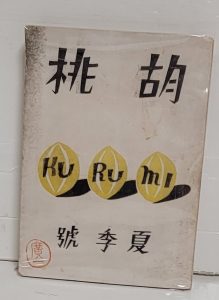 胡桃
KU RU MI
夏季號